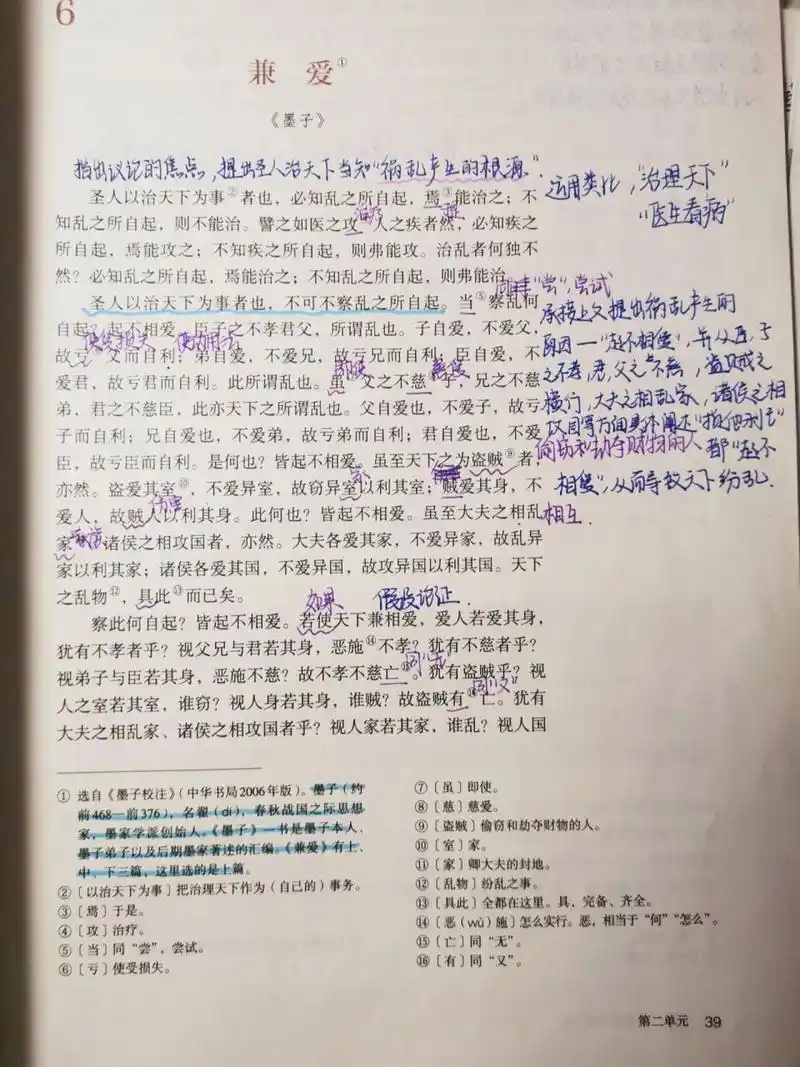 6
兼 爱①
《墨子》
指出议论的焦点，提出圣人治天下当知“祸乱产生的根源”.
圣人以治天下为事②者也，必知乱之所自起，焉③能治之；不
知乱之所自起，则不能治。譬之如医之攻④人之疾者然，必知疾之
所自起，焉能攻之；不知疾之所自起，则弗能攻。治乱者何独不
然？必知乱之所自起，焉能治之；不知乱之所自起，则弗能治。
运用类比，“治理天下”
“医生看病”
同“尝”，尝试
圣人以治天下为事者也，不可不察乱之所自起。当⑤察乱何
自起？起不相爱。臣子之不孝君父，所谓乱也。子自爱，不爱父，
使受损失
故亏⑥父而自利；弟自爱，不爱兄，故亏兄而自利；臣自爱，不
爱君，故亏君而自利。此所谓乱也。虽⑦父之不慈⑧子，兄之不慈
即使
慈爱
弟，君之不慈臣，此亦天下之所谓乱也。父自爱也，不爱子，故亏
子而自利；兄自爱也，不爱弟，故亏弟而自利；君自爱也，不爱
臣，故亏臣而自利。是何也？皆起不相爱。虽至天下之为盗贼⑨者，
亦然。盗爱其室⑩，不爱异室，故窃异室以利其室；贼爱其身，不
爱人，故贼人以利其身。此何也？皆起不相爱。虽至大夫之相乱
家⑪、诸侯之相攻国者，亦然。大夫各爱其家，不爱异家，故乱异
家以利其家；诸侯各爱其国，不爱异国，故攻异国以利其国。天下
之乱物⑫，具此⑬而已矣。
承接上文提出祸乱产生的
原因—“起不相爱”，并从臣、子
之不孝，君，父之不慈，盗贼之
横行，大夫之相乱家，诸侯之相
偷窃和劫夺财物的人
相互.
如果
假设论证.
察此何自起？皆起不相爱。若使天下兼相爱，爱人若爱其身，
犹有不孝者乎？视父兄与君若其身，恶施⑭不孝？犹有不慈者乎？
视弟子与臣若其身，恶施不慈？故不孝不慈亡⑮。犹有盗贼乎？视
同“无”
人之室若其室，谁窃？视人身若其身，谁贼？故盗贼有⑯亡。犹有
同“又”
大夫之相乱家、诸侯之相攻国者乎？视人家若其家，谁乱？视人国
① 选自《墨子校注》（中华书局2006年版）。墨子（约
前468—前376），名翟（dí），春秋战国之际思想
家，墨家学派创始人。《墨子》一书是墨子本人、
墨子弟子以及后期墨家著述的汇编。《兼爱》有上、
中、下三篇，这里选的是上篇。
②〔以治天下为事〕把治理天下作为（自己的）事务。
③〔焉〕于是。
④〔攻〕治疗。
⑤〔当〕同“尝”，尝试。
⑥〔亏〕使受损失。
⑦〔虽〕即使。
⑧〔慈〕慈爱。
⑨〔盗贼〕偷窃和劫夺财物的人。
⑩〔室〕家。
⑪〔家〕卿大夫的封地。
⑫〔乱物〕纷乱之事。
⑬〔具此〕全都在这里。具，完备、齐全。
⑭〔恶（wū）施〕怎么实行。恶，相当于“何”“怎么”。
⑮〔亡〕同“无”。
⑯〔有〕同“又”。
第二单元 39